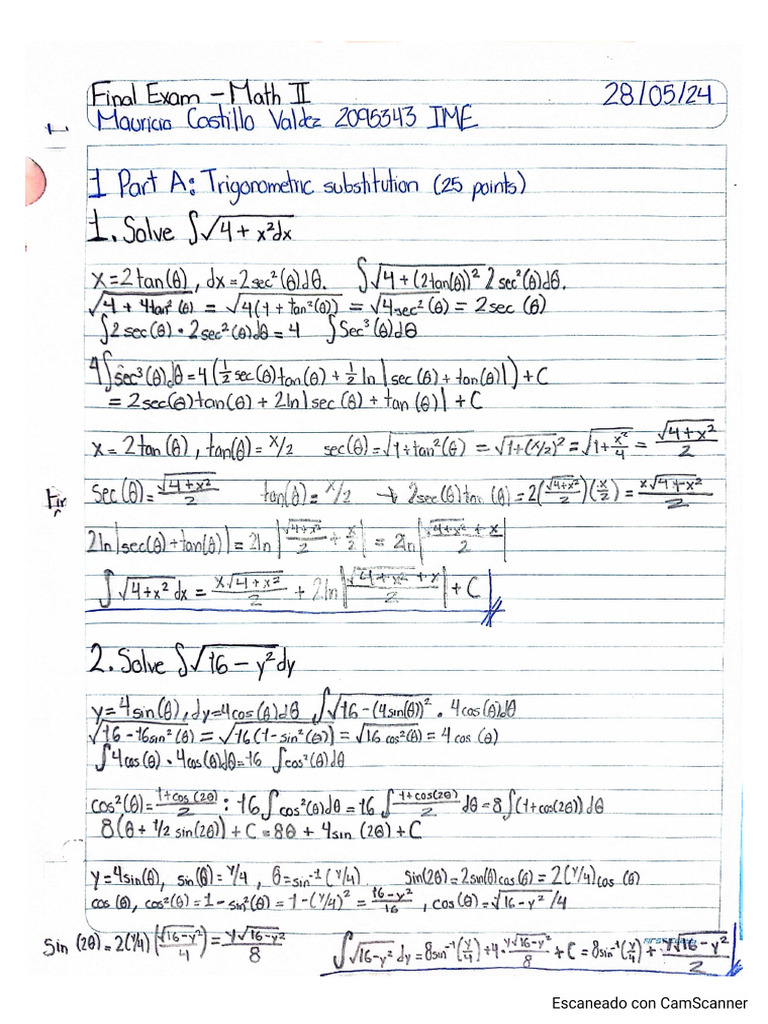 Final Exam - Math II 28/05/24
Mauricio Castillo Valdez 2095343 IME
1 Part A: Trigonometric substitution (25 points)
1. Solve ∫√4 + x²dx
x=2tan(θ), dx=2sec²(θ)dθ. ∫√4+(2tan(θ))² 2sec²(θ)dθ.
√4 + 4tan²(θ) = √4(1 + tan²(θ)) = √4sec²(θ) = 2sec (θ)
∫2sec(θ)·2sec²(θ)dθ=4 ∫Sec³(θ)dθ
4∫sec³(θ)dθ=4(1/2 sec(θ)tan(θ) + 1/2 ln|sec(θ) + tan(θ)|) + C
= 2sec(θ)tan(θ) + 2ln|sec(θ) + tan(θ)| + C
x=2tan(θ), tan(θ)=x/2 sec(θ)=√1+tan²(θ) = √1+(x/2)² = √1+x²/4 = √4+x²/2
Sec(θ)=√4+x²/2 tan(θ)=x/2 → 2sec(θ)tan(θ)=2(√4+x²/2)(x/2)=x√4+x²/2
2ln|sec(θ)+tan(θ)|=2ln|√4+x²/2 + x/2| = 2ln|√4+x² + x/2|
∫√4+x² dx = x√4+x²/2 + 2ln|√4+x² + x/2| + C
2. Solve ∫√16 - y²dy
y=4sin(θ), dy=4cos(θ)dθ ∫√16-(4sin(θ))² · 4cos(θ)dθ
√16-16sin²(θ) = √16(1-sin²(θ)) = √16cos²(θ) = 4cos (θ)
∫4cos(θ)·4cos(θ)dθ=16 ∫cos²(θ)dθ
cos²(θ)=1+cos(2θ)/2 : 16∫cos²(θ)dθ=16∫1+cos(2θ)/2 dθ=8∫(1+cos(2θ))dθ
8(θ+1/2 sin(2θ)) + C = 8θ + 4sin (2θ)+C
y=4sin(θ), sin(θ)=y/4, θ=sin⁻¹(y/4) Sin(2θ)=2sin(θ)cos(θ)=2(y/4)cos (θ)
cos(θ), cos²(θ)=1-sin²(θ)=1-(y/4)²=16-y²/16, cos(θ)=√16-y²/4
Sin (2θ)=2(y/4)(√16-y²/4)=y√16-y²/8 ∫√16-y² dy=8sin⁻¹(y/4)+4·y√16-y²/8 + C = 8sin⁻¹(y/4)+y√16-y²/2
Escaneado con CamScanner